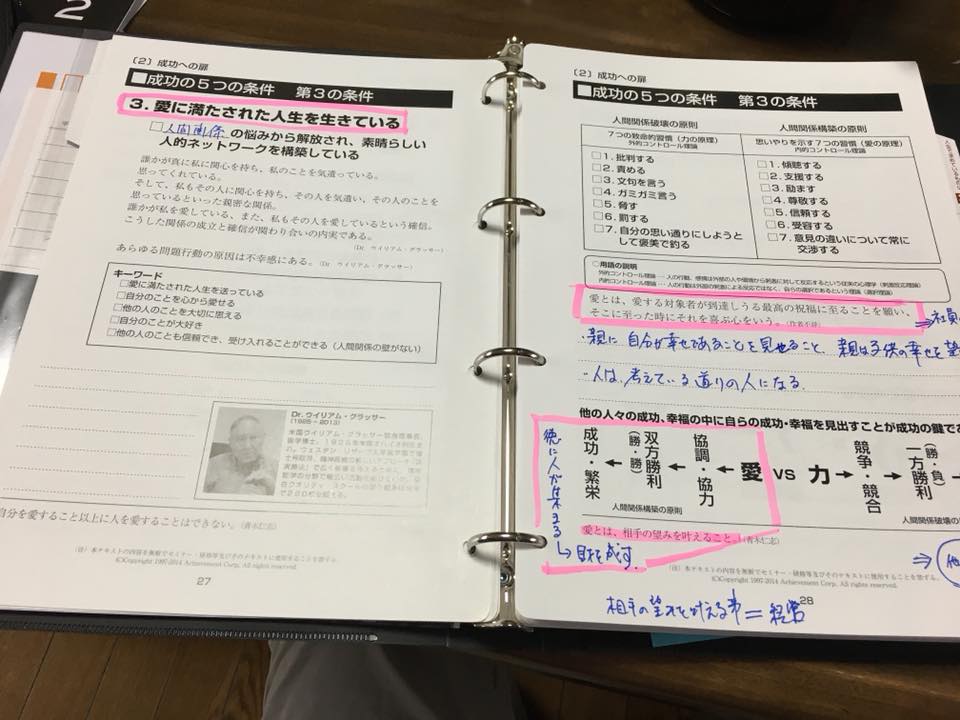 2
〔2〕成功への扉
■成功の5つの条件　第3の条件
3. 愛に満たされた人生を生きている
□人間関係の悩みから解放され、素晴らしい
人的ネットワークを構築している
誰かが真に私に関心を持ち、私のことを気遣っている。
思ってくれている。
そして、私もその人に関心を持ち、その人を気遣い、その人のことを
思っているといった親密な関係。
誰かが私を愛している、また、私もその人を愛しているという確信。
こうした関係の成立と確信が関わり合いの内実である。
（Dr. ウイリアム・グラッサー）
あらゆる問題行動の原因は不幸感にある。（Dr. ウイリアム・グラッサー）
キーワード
□愛に満たされた人生を送っている
□自分のことを心から愛せる
□他の人のことを大切に思える
□自分のことが大好き
□他の人のことも信頼でき、受け入れることができる（人間関係の壁がない）
Dr. ウイリアム・グラッサー
(1925 - 2013)
自分を愛すること以上に人を愛することはできない。（青木仁志）
（注）本テキストの内容を無断でセミナー・研修等及びそのテキストに使用することを禁ずる。
(C)Copyright 1997-2014 Achievement Corp. All rights reserved.
27
〔2〕成功への扉
■成功の5つの条件　第3の条件
人間関係破壊の原則
7つの致命的習慣（力の原理）
外的コントロール理論
□1. 批判する
□2. 責める
□3. 文句を言う
□4. ガミガミ言う
□5. 脅す
□6. 罰する
□7. 自分の思い通りにしようと
して褒美で釣る
人間関係構築の原則
思いやりを示す7つの習慣（愛の原理）
内的コントロール理論
□1. 傾聴する
□2. 支援する
□3. 励ます
□4. 尊敬する
□5. 信頼する
□6. 受容する
□7. 意見の違いについて常に
交渉する
○用語の説明
外的コントロール理論･･･人の行動、感情は外部の人や環境から刺激に対して反応するという従来の心理学（刺激反応理論）
内的コントロール理論･･･人の行動は外部の刺激による反応ではなく、自らの選択であるという理論（選択理論）
愛とは、愛する対象者が到達しうる最高の祝福に至ることを願い、
そこに至った時にそれを喜ぶ心をいう。（作者不詳）
⇒社員
・親に自分が幸せであることを見せること、親は子供の幸せを
・人は、考えている通りの人になる。
他の人々の成功、幸福の中に自らの成功・幸福を見出すことが成功の鍵であ
徳に人が集まる
↳目的を成す。
成功・繁栄
←
双方勝利
（勝・勝）
←
協調・協力
←
愛
VS
力
→
競争・競合
→
一方勝利
（勝・負）
→
人間関係構築の原則
人間関係破壊の
愛とは、相手の望みを叶えること。（青木仁志）
⇒他
（注）本テキストの内容を無断でセミナー・研修等及びそのテキストに使用することを禁ずる。
(C)Copyright 1997-2014 Achievement Corp. All rights reserved.
28
相手の望みを叶える事＝経営